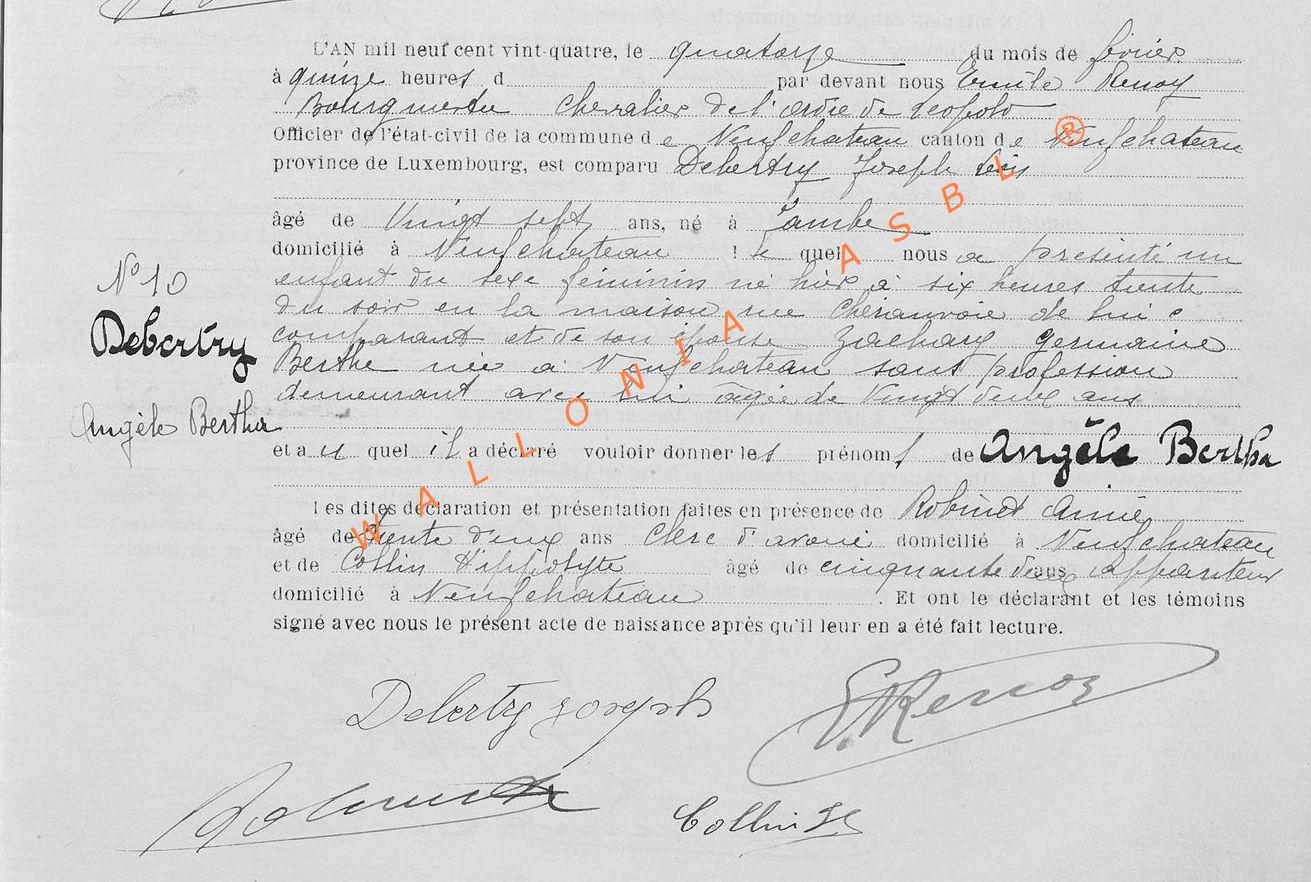 L'AN mil neuf cent vint-quatre, le quatorze du mois de février
à quinze heures d par devant nous Emile Renoy
Bourgmestre Chevalier de l'ordre de Léopold
Officier de l'état-civil de la commune de Neufchateau canton de Neufchateau
province de Luxembourg, est comparu Debertry Joseph
âgé de Vingt sept ans, né à Jambe
domicilié à Neufchateau lequel nous a présenté un
enfant du sexe féminin né hier à six heures trente
du soir en la maison rue Chéravoie de lui
comparant et de son épouse Zachary Germaine
Berthe née à Neufchateau sans profession
demeurant avec lui âgée de Vingt deux ans
et auquel il a déclaré vouloir donner les prénoms de Angèle Bertha
Les dites déclaration et présentation faites en présence de Robinet
âgé de trente deux ans Clerc d'avoué domicilié à Neufchateau
et de Collin Hippolyte âgé de cinquante deux ans appariteur
domicilié à Neufchateau. Et ont le déclarant et les témoins
signé avec nous le présent acte de naissance après qu'il leur en a été fait lecture.
N° 10
Debertry
Angèle Bertha
Debertry Joseph
E. Renoy
Robinet
Collin H
WALLONIA ASBL ®